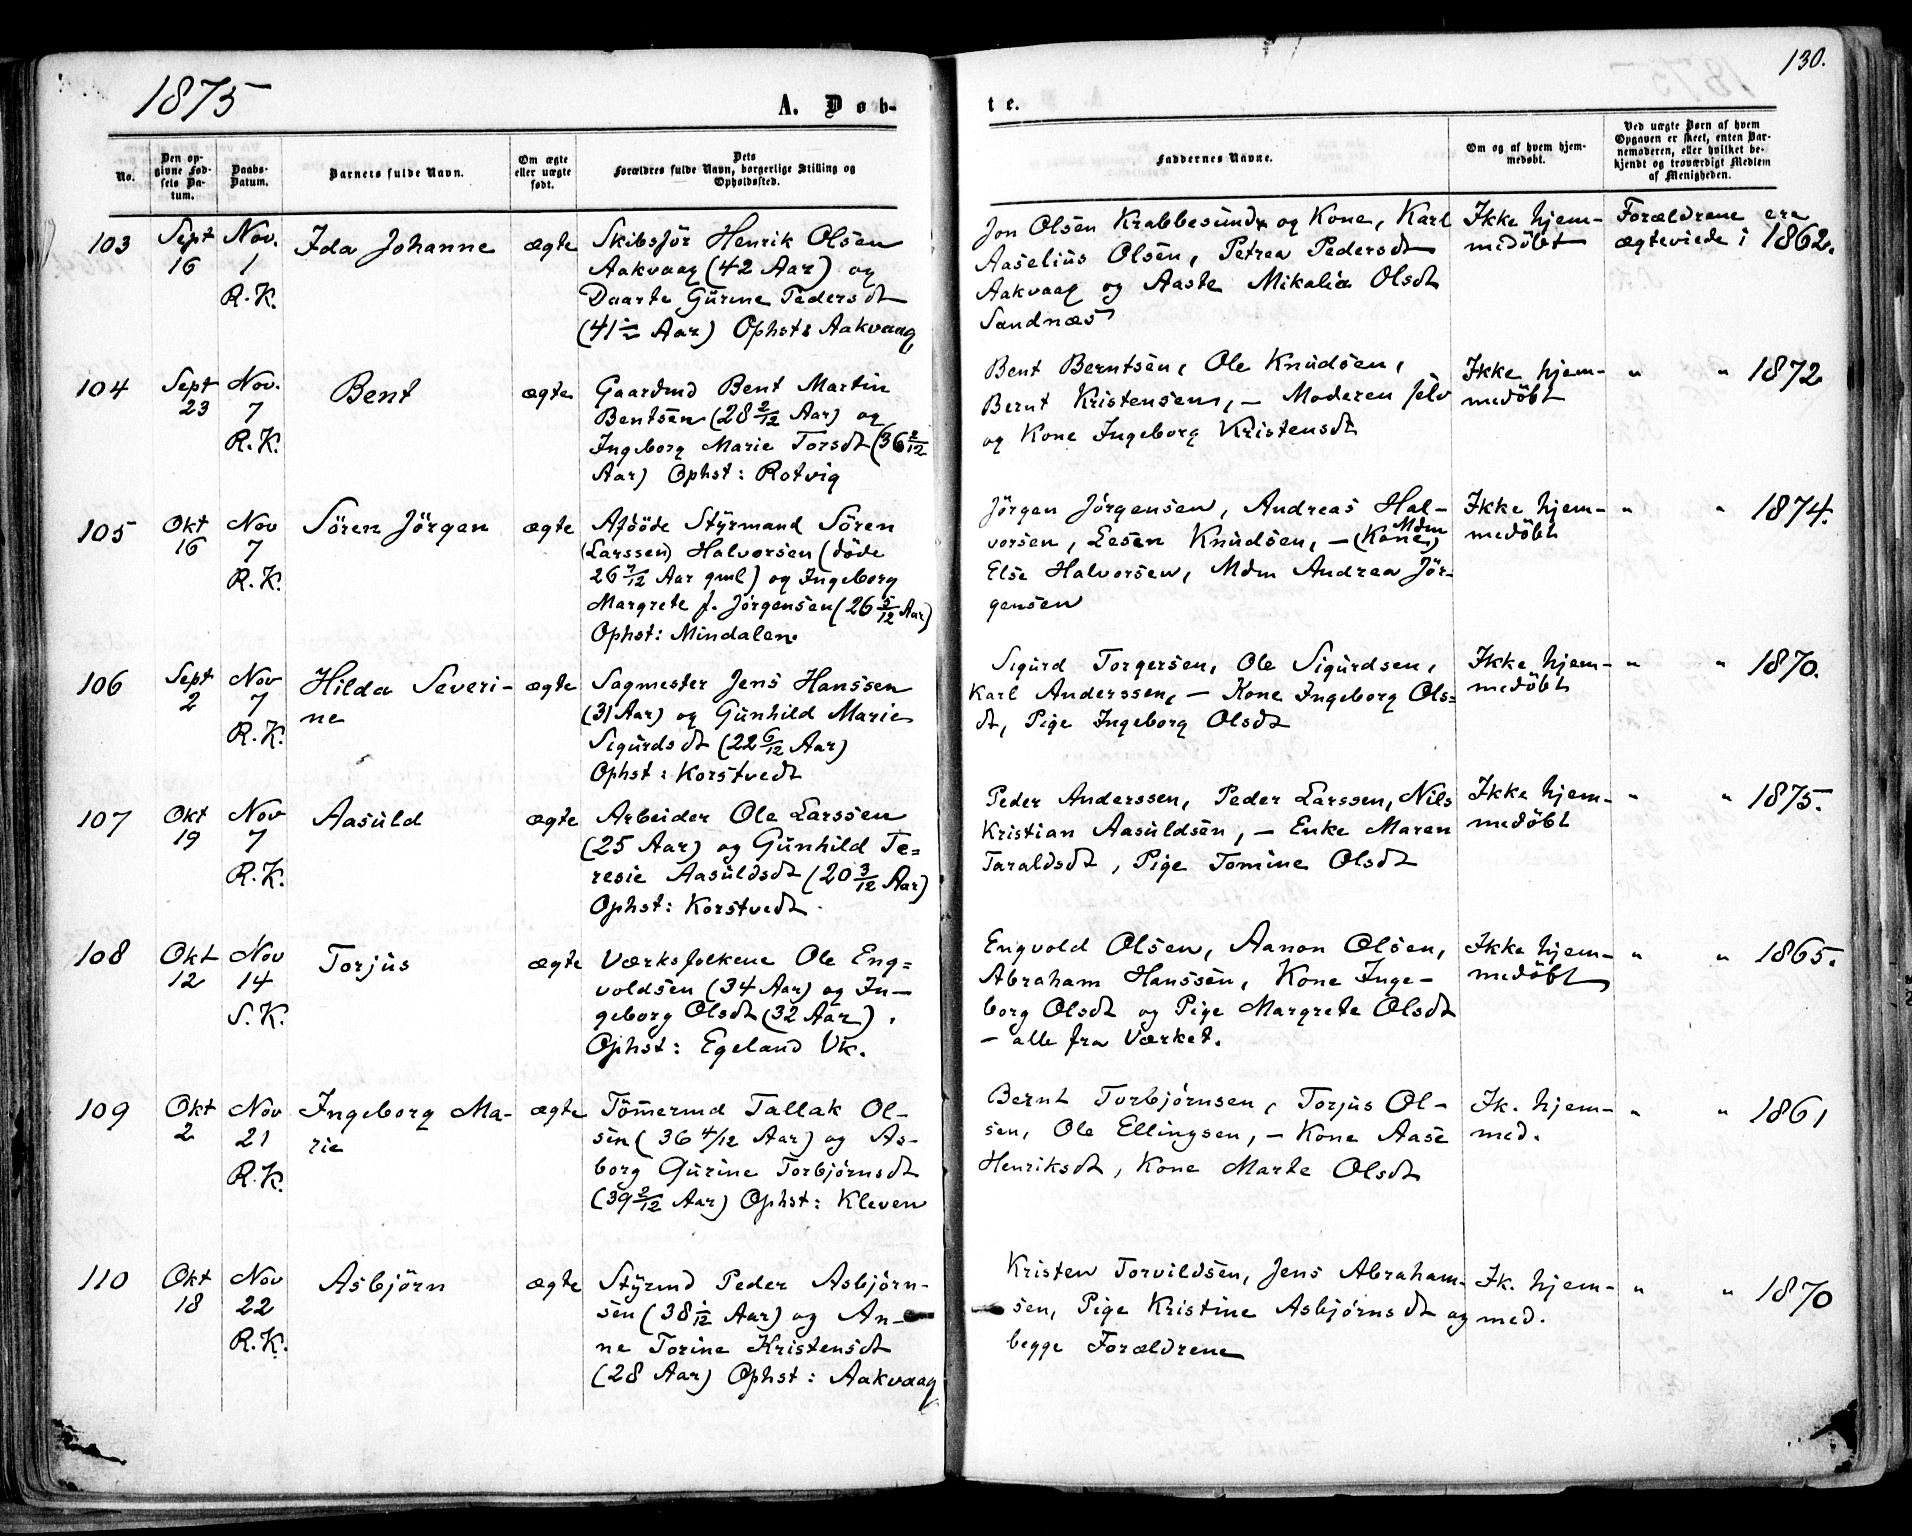 1875
A. Døb-
te.
130.
No.
Den op-
givne Fød-
sels Da-
tum.
Daabs-
Datum.
Barnets fulde Navn.
Om ægte
eller uægte
født.
Dets
Forældres fulde Navn, borgerlige Stilling og
Opholdssted.
Faddernes Navne.
Om og af hvem hjem-
medøbt.
Ved uægte Børn af hvem
Opgaven er skeet, enten Bar-
nemoderen, eller hvilket be-
kjendt og troværdigt Medlem
af Menigheden.
103
Sept
16
Nov.
1
R.K.
Ida Johanne
ægte
Skibsför Henrik Olsen
Aakvaag (42 Aar) og
Daarte Gurine Pedersdt
(41 ½ Aar) Ophsts Aakvaag
Jon Olsen Krabbesund og Kone, Karl
Aaselius Olsen, Petrea Pedersdt
Aakvaag og Aaste Mikalia Olsdt
Sandnæs
Ikke hjem-
medöbt
Forældrene ere
ægteviede i 1862.
104
Sept
23
Nov.
7
R.K.
Bent
ægte
Gaardmd Bent Martin
Bentsen (28 2/12 Aar) og
Ingeborg Marie Torsdt (36 2/12
Aar) Ophst: Rotvig
Bent Berntsen, Ole Knudsen,
Bernt Kristensen, – Moderen selv
og Kone Ingeborg Kristensdt
Ikke hjem-
medöbt
" " 1872
105
Okt
16
Nov
7
R.K.
Sören Jörgen
ægte
Afdöde Styrmand Sören
(Larssen) Halvorsen (döde
26 7/12 Aar gml) og Ingeborg
Margrete f. Jörgensen (26 5/12 Aar)
Ophst: Mindalen
Jörgen Jörgensen, Andreas Hal-
vorsen, Lesen Knudsen, – (Kone) Mdm
Else Halvorsen, Mdm Andrea Jör-
gensen
Ikke hjem-
medöbt
" " 1874.
106
Sept
2
Nov
7
R.K.
Hilda Severi-
ne
ægte
Sagmester Jens Hanssen
(31 Aar) og Gunhild Marie
Sigurdsdt (22 6/12 Aar)
Ophst: Korstvedt
Sigurd Torgersen, Ole Sigurdsen,
Karl Anderssen, – Kone Ingeborg Ols=
dt, Pige Ingeborg Olsdt
Ikke hjem-
medöbt
" " 1870.
107
Okt
19
Nov
7
R.K.
Aasuld
ægte
Arbeider Ole Larssen
(25 Aar) og Gunhild Te=
resie Aasuldsdt (20 3/12 Aar)
Ophst: Korstvedt
Peder Anderssen, Peder Larssen, Nils
Kristian Aasuldsen, – Enke Maren
Taraldsdt, Pige Tomine Olsdt
Ikke hjem-
medöbt
" " 1875.
108
Okt
12
Nov
14
S.K.
Torjus
ægte
Værksfolkene Ole Eng=
voldsen (34 Aar) og In-
geborg Olsdt (32 Aar).
Ophst: Egeland Vk.
Engvold Olsen, Aanon Olsen,
Abraham Hanssen, Kone Inge-
borg Olsdt og Pige Margrete Olsdt
– alle fra Værket.
Ikke hjem-
medöbt
" " 1865.
109
Okt
2
Nov
21
R.K.
Ingeborg Ma-
rie
ægte
Tömermd Tallak Ol-
sen (36 4/12 Aar) og As-
borg Gurine Torbjörnsdt
(39 2/12 Aar) Ophst: Kleven
Bernt Torbjörnsen, Torjus Ol-
sen, Ole Ellingsen, – Kone Aase
Henriksdt, Kone Marte Olsdt
Ik. hjem-
med.
" " 1861
110
Okt
18
Nov
22
R.K.
Asbjörn
ægte
Styrmd Peder Asbjörn-
sen (38 1/12 Aar) og An-
ne Torine Kristensdt
(28 Aar) Ophst: Aakvaag
Kristen Torvildsen, Jens Abraham-
sen, Pige Kristine Asbjörnsdt og
begge Forældrene
Ik. hjem-
med.
" " 1870